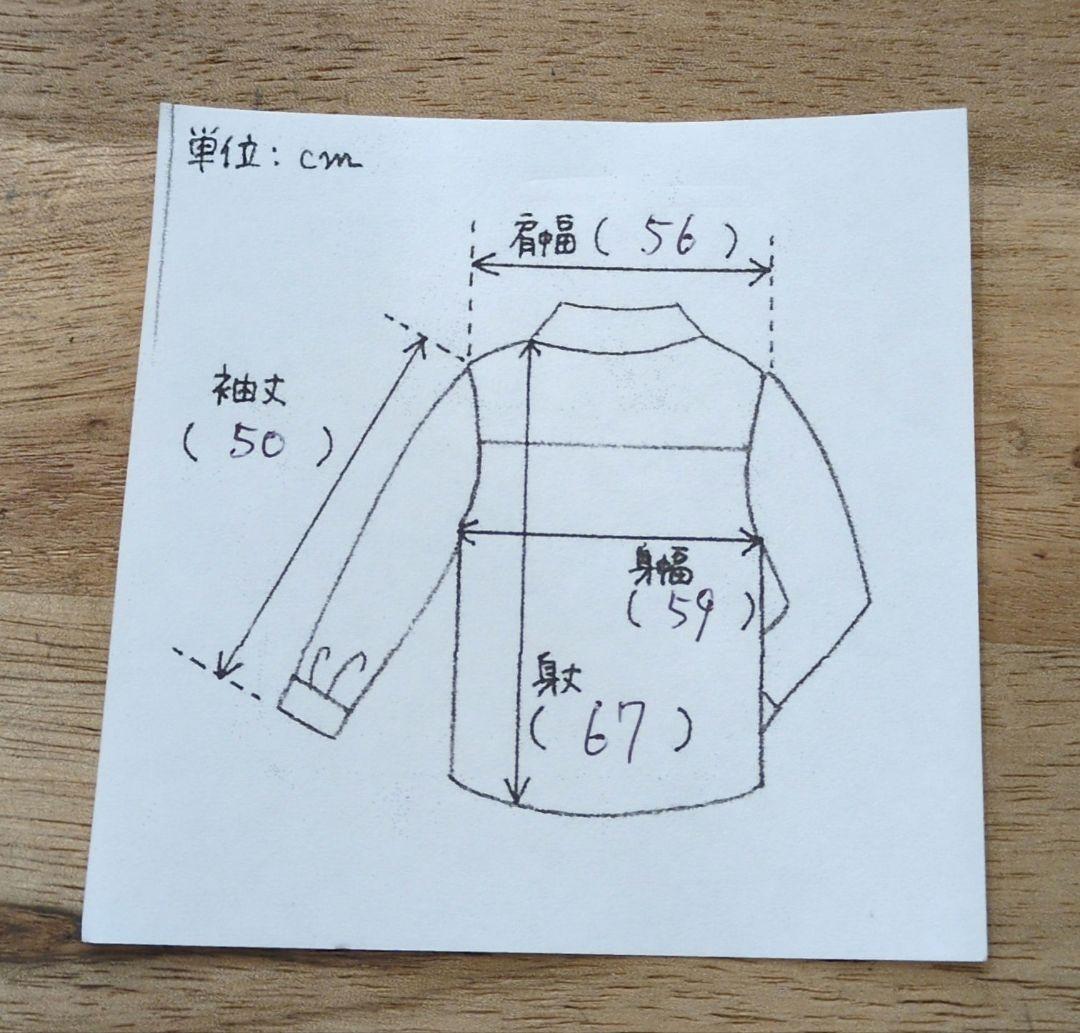 単位：cm
肩幅（ 56 ）
袖丈
（ 50 ）
身幅
（ 59 ）
身丈
（ 67 ）